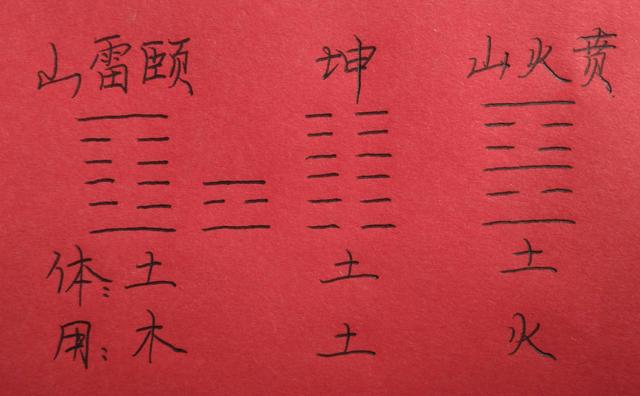 山雷颐 坤 山火贲
体: 土 土 土
用: 木 土 火